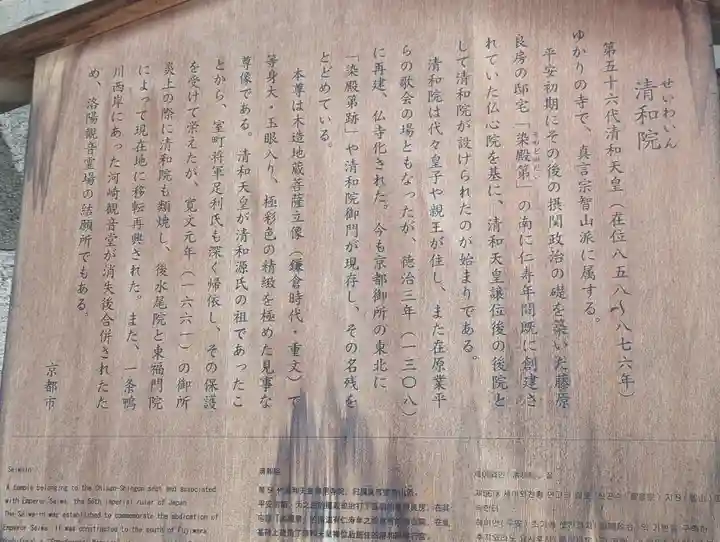 せいわいん
清和院
第五十六代清和天皇（在位八五八〜八七六年）
ゆかりの寺で、真言宗智山派に属する。
平安初期にその後の摂関政治の礎を築いた藤原
良房の邸宅「染殿第」の南に仁寿年間既に創建さ
れていた仏心院を基に、清和天皇譲位後の後院と
して清和院が設けられたのが始まりである。
清和院は代々皇子や親王が住し、また在原業平
らの歌会の場ともなったが、徳治三年（一三〇八）
に再建、仏寺化された。今も京都御所の東北に
「染殿第跡」や清和院御門が現存し、その名残を
とどめている。
本尊は木造地蔵菩薩立像（鎌倉時代・重文）で
等身大・玉眼入り、極彩色の精緻を極めた見事な
尊像である。清和天皇が清和源氏の祖であったこ
とから、室町将軍足利氏も深く帰依し、その保護
を受けて栄えたが、寛文元年（一六六一）の御所
炎上の際に清和院も類焼し、後水尾院と東福門院
によって現在地に移転再興された。また、一条鴨
川西岸にあった河崎観音堂が消失後合併されたた
め、洛陽観音霊場の結願所でもある。
京都市
Seiwain
A temple belonging to the Chisan-Shingon sect and associated
with Emperor Seiwa, the 56th imperial ruler of Japan.
The Seiwa-in was established to commemorate the abdication of
Emperor Seiwa. It was constructed to the south of Fujiwara